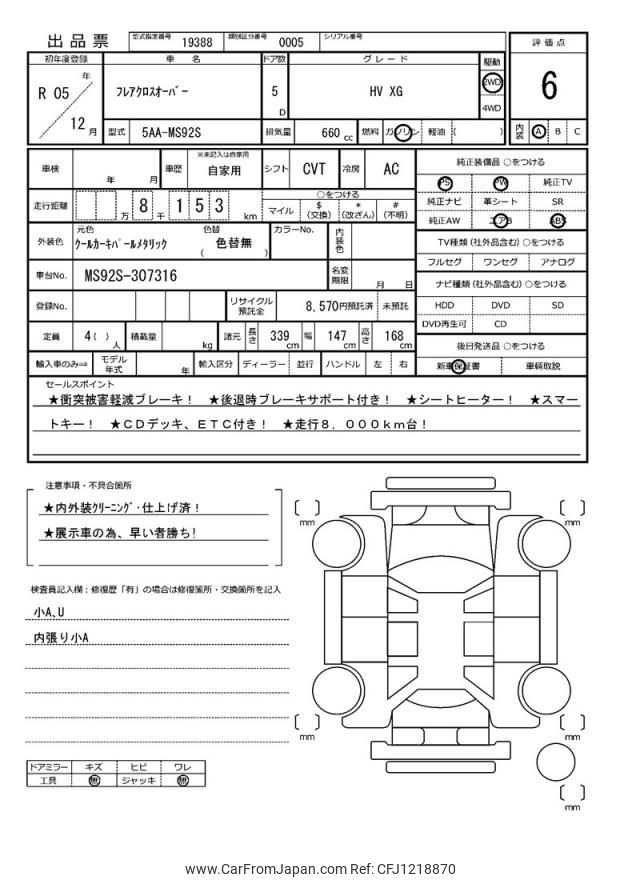 出品票 型式指定番号 19388 類別区分番号 0005 シリアル番号
評価点
6
内装 A B C
初年度登録 車名 ドア数 グレード 駆動
R 05 年 12 月
フレアクロスオーバー 5 D HV XG 2WD
4WD
型式 5AA-MS92S 排気量 660 cc 燃料 ガソリン 軽油 ( )
車検 年 月 車歴 ※未記入は自家用 自家用 シフト CVT 冷房 AC
走行距離 万 8 千 1 5 3 km
○をつける
マイル $(交換) *(改ざん) #(不明)
外装色 元色 クールカーキパールメタリック 色替 ( 色替無 ) カラーNo. 内装色
車台No. MS92S-307316 名変期限 月 日
登録No. リサイクル預託金 8,570円預託済 未預託
定員 4( )人 積載量 kg 諸元 長さ 339 cm 幅 147 cm 高さ 168 cm
輸入車のみ⇒ モデル年式 年 輸入区分 ディーラー 並行 ハンドル 左 右
純正装備品 ○をつける
PS PW 純正TV
純正ナビ 革シート SR
純正AW エアB ABS
TV種類 (社外品含む) ○をつける
フルセグ ワンセグ アナログ
ナビ種類 (社外品含む) ○をつける
HDD DVD SD
DVD再生可 CD
後日発送品 ○をつける
新車保証書 車輌取説
セールスポイント
★衝突被害軽減ブレーキ! ★後退時ブレーキサポート付き! ★シートヒーター! ★スマー
トキー! ★CDデッキ、ETC付き! ★走行8,000km台!
注意事項・不具合箇所
★内外装クリーニング・仕上げ済!
★展示車の為、早い者勝ち!
検査員記入欄:修復歴「有」の場合は修復箇所・交換箇所を記入
小A,U
内張り小A
ドアミラー キズ ヒビ ワレ
工具 無 ジャッキ 無
mm
mm
mm
mm
mm
www.CarFromJapan.com Ref: CFJ1218870